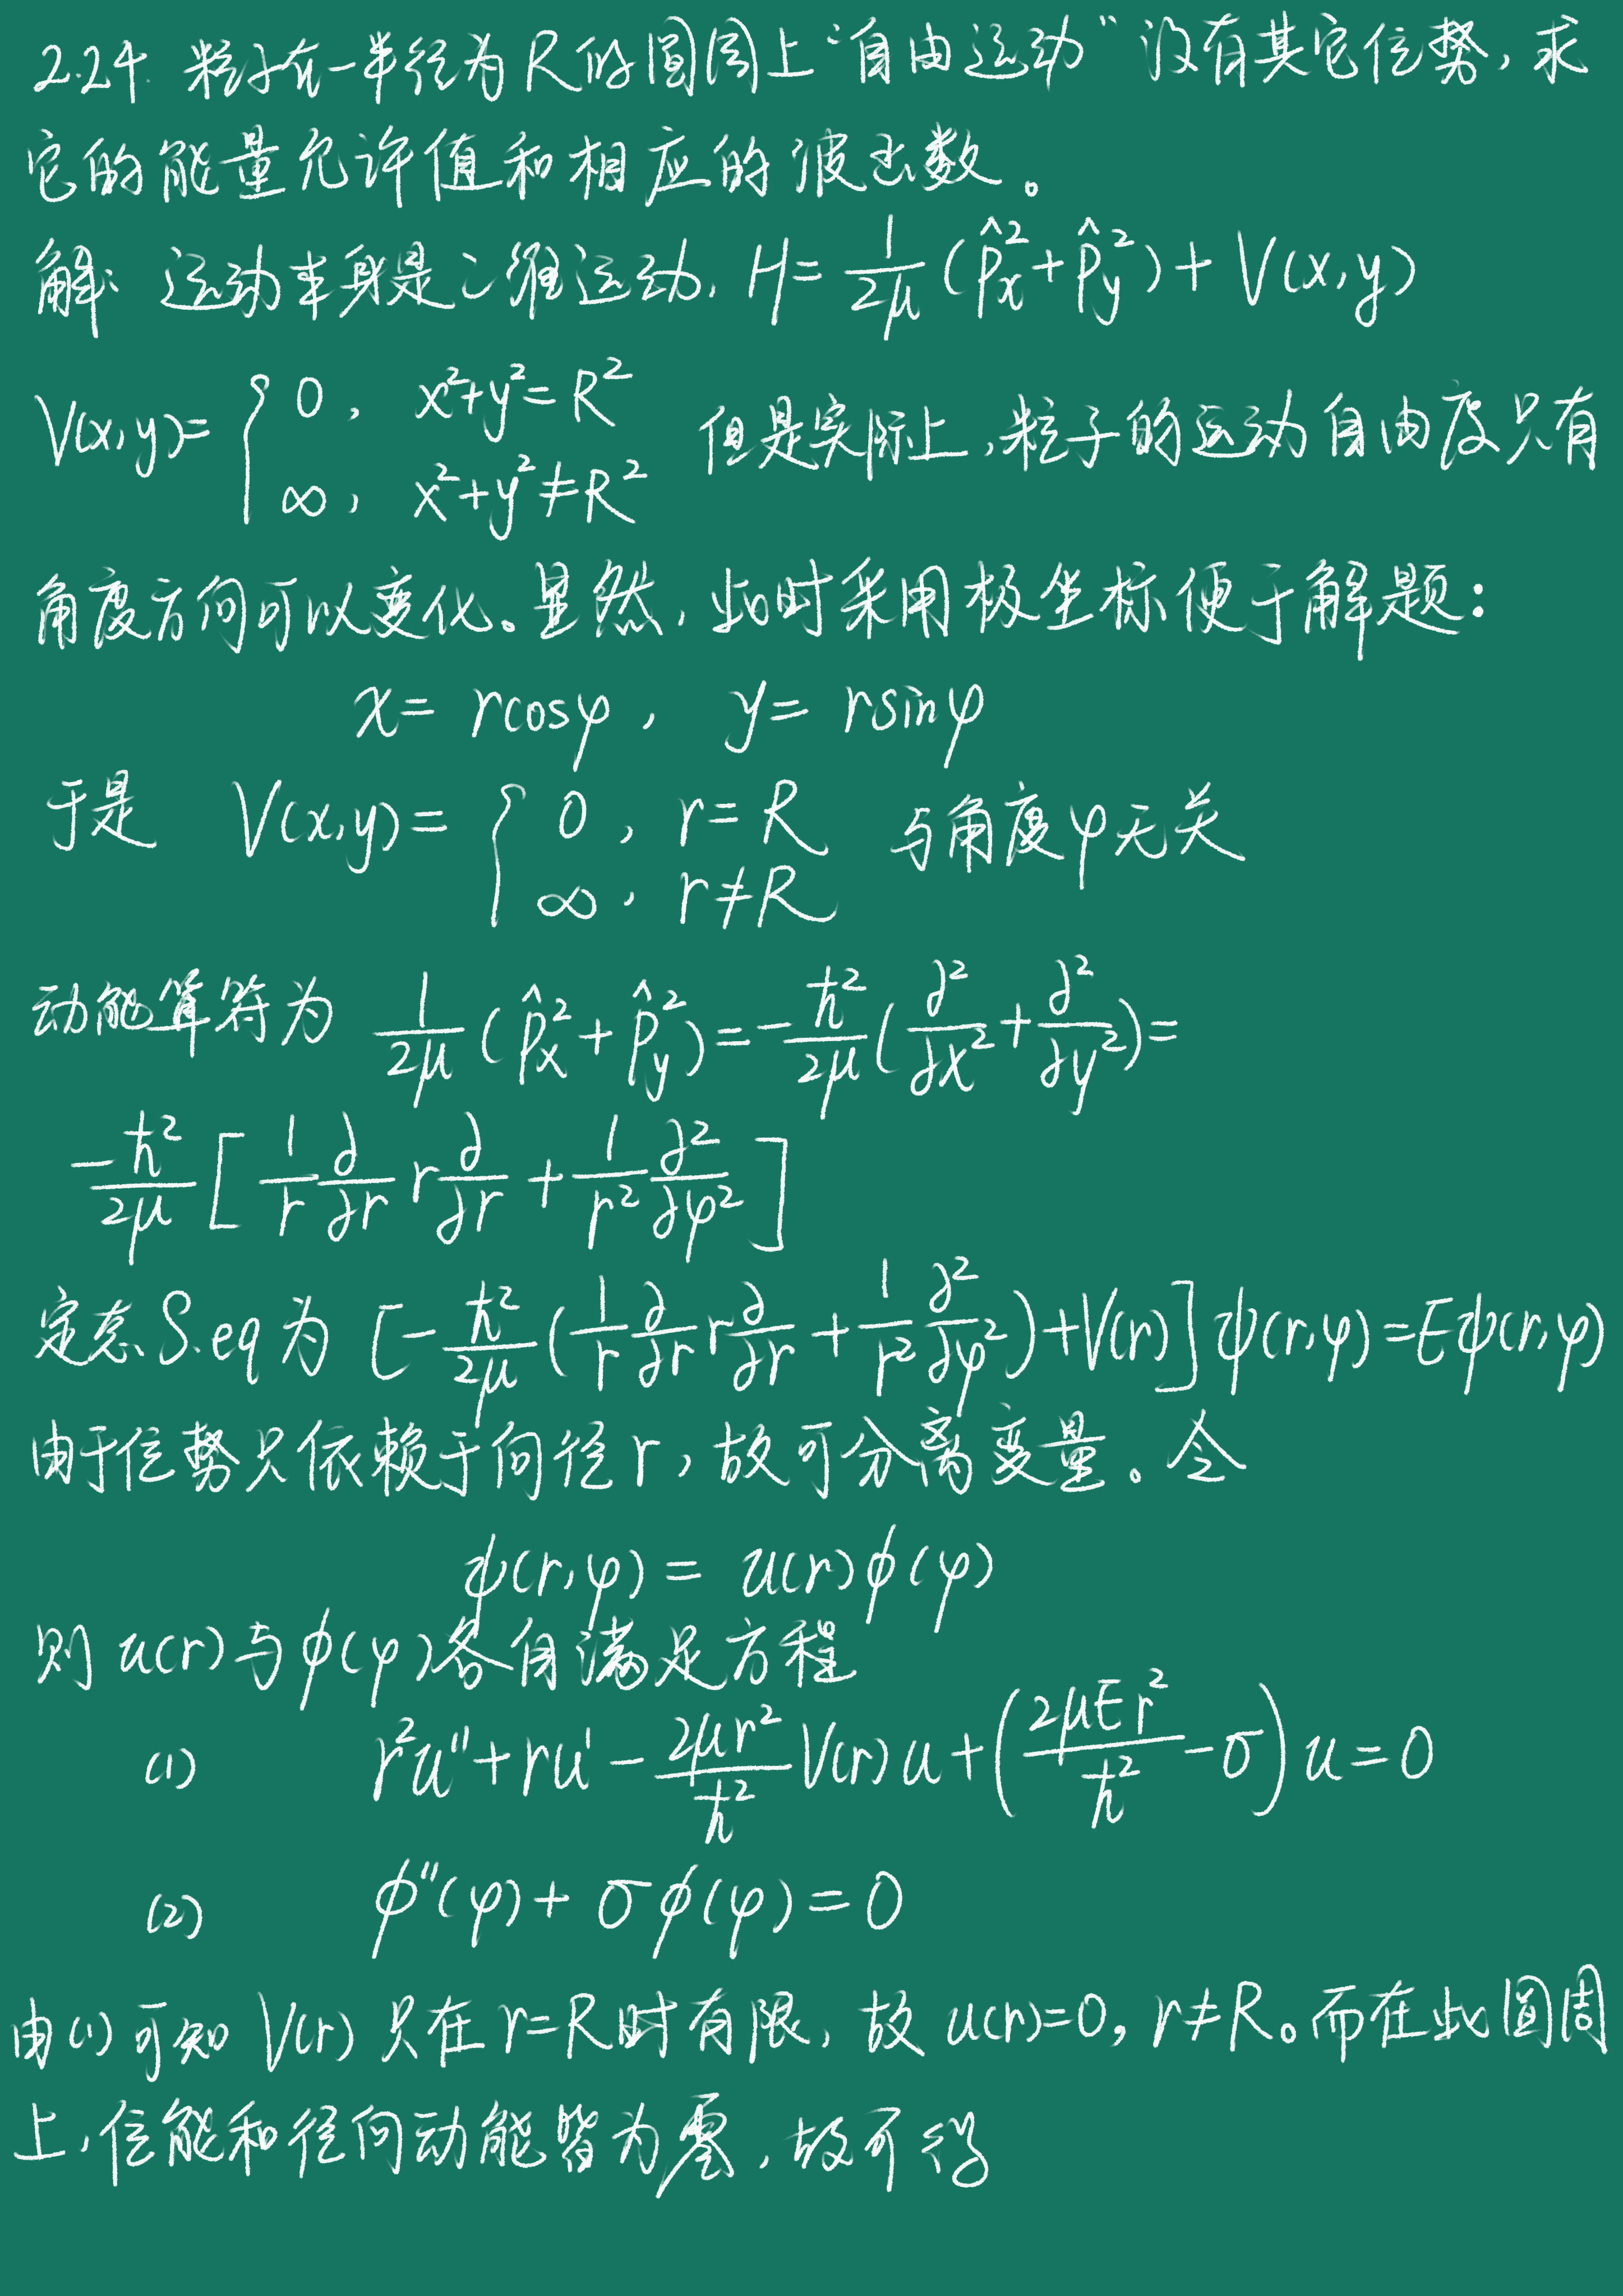 2.24. 粒子在一半径为R的圆周上“自由运动”没有其它位势,求
它的能量允许值和相应的波函数。
解: 运动本身是二维运动, H = \frac{1}{2μ}(\hat{p}_x^2 + \hat{p}_y^2) + V(x,y)
V(x,y) = { 0, x²+y²=R² ; ∞, x²+y²≠R² 但是实际上,粒子的运动自由度只有
角度方向可以变化。显然,此时采用极坐标便于解题:
x = rcosφ, y = rsinφ
于是 V(x,y) = { 0, r=R ; ∞, r≠R 与角度φ无关
动能算符为 \frac{1}{2μ}(\hat{p}_x^2 + \hat{p}_y^2) = -\frac{ħ²}{2μ}(\frac{∂²}{∂x²} + \frac{∂²}{∂y²}) =
-\frac{ħ²}{2μ}[\frac{1}{r}\frac{∂}{∂r} r \frac{∂}{∂r} + \frac{1}{r²}\frac{∂²}{∂φ²}]
定态S.eq为 [-\frac{ħ²}{2μ}(\frac{1}{r}\frac{∂}{∂r} r \frac{∂}{∂r} + \frac{1}{r²}\frac{∂²}{∂φ²}) + V(r)]ψ(r,φ) = Eψ(r,φ)
由于位势只依赖于向径r,故可分离变量。令
ψ(r,φ) = u(r)ϕ(φ)
则 u(r)与ϕ(φ)各自满足方程
(1) r²u'' + ru' - \frac{2μr²}{ħ²}V(r)u + (\frac{2μEr²}{ħ²} - σ)u = 0
(2) ϕ''(φ) + σϕ(φ) = 0
由(1)可知 V(r) 只在r=R时有限,故 u(r)=0, r≠R。而在此圆周
上,位能和径向动能皆为零,故可得